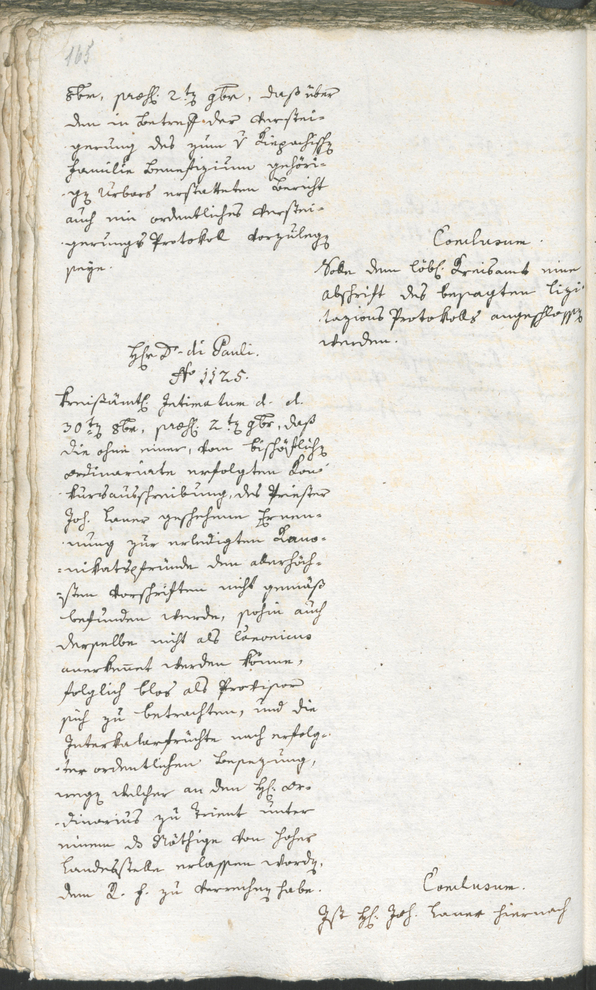 165
8br, praes. 2ten 9br, daß über
den in Betreff der Verstei-
gerung des zum v Riepachisch
Familie Benefizium gehöri-
gen Urbars erstatteten Bericht
auch ein ordentliches Verstei-
gerungs Protokol vorzulegen
seye.
Conclusum.
Solle dem löbl. Kreisamt eine
Abschrift des besagten Lizi-
tazions Protokolls angeschlossen
werden.
Hr Dr di Pauli.
No 1125.
Kreisämtl. Intimatum d. d.
30ten 8br, praes. 2ten 9br, daß
die ohne einer, vom bischöflichen
Ordinariate erfolgten Kon-
kursausschreibung, des Priester
Joh. Laner geschehene Ernen-
nung zur erledigten Kano-
nikatspfründe den allerhöch-
sten Vorschriften nicht gemäß
befunden werde, sohin auch
derselbe nicht als Canonicus
anerkennet werden könne,
folglich blos als Provisor
sich zu betrachten, und die
Interkalarfrüchte nach erfolg-
ter ordentlichen Besezung,
wegen welcher an den H. Or-
dinarius zu Trient unter
einem das Nöthige von hoher
Landesstelle erlassen worden,
dem R. f. zu verreichen habe.
Conclusum.
Ist H. Joh. Laner hiernach